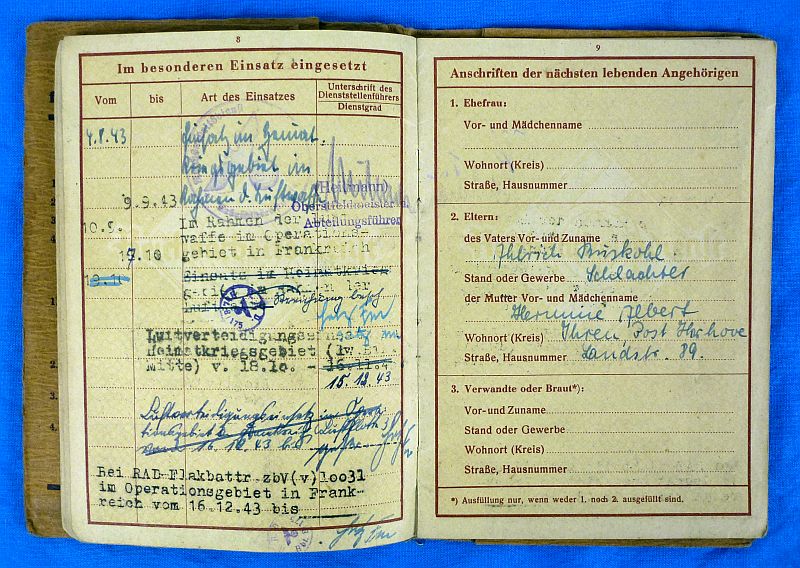 8
Im besonderen Einsatz eingesetzt
Vom
bis
Art des Einsatzes
Unterschrift des
Dienststellenführers
Dienstgrad
4.8.43
Einsatz im Heimat-
Kriegsgebiet im
9.9.43 Rahmen d. Luftwaffe
(Heitmann)
Oberstfeldmeister
Abteilungsführer
10.9.
Im Rahmen der Luft-
waffe im Operations-
17.10
gebiet in Frankreich
Einsatz im Heimatkrie
der
Streichung besch.
Luftverteidigungseinsatz im
Heimatkriegsgebiet
Mitte) v. 18.10. -
15.12.43
Luftverteidigungseinsatz im Opera
tionsgebiet Frankreich Luftflotte 3
vom 16.12.43 bis
Bei RAD-Flakbattr.zbV(v)10031
im Operationsgebiet in Frank-
reich vom 16.12.43 bis
9
Anschriften der nächsten lebenden Angehörigen
1. Ehefrau:
Vor- und Mädchenname
Wohnort (Kreis)
Straße, Hausnummer
2. Eltern:
des Vaters Vor- und Zuname
Stand oder Gewerbe Schlachter
der Mutter Vor- und Mädchenname
Hermine Albert
Wohnort (Kreis) Ihren, Post Ihrhove
Straße, Hausnummer Landstr. 89.
3. Verwandte oder Braut*):
Vor- und Zuname
Stand oder Gewerbe
Wohnort (Kreis)
Straße, Hausnummer
*) Ausfüllung nur, wenn weder 1. noch 2. ausgefüllt sind.